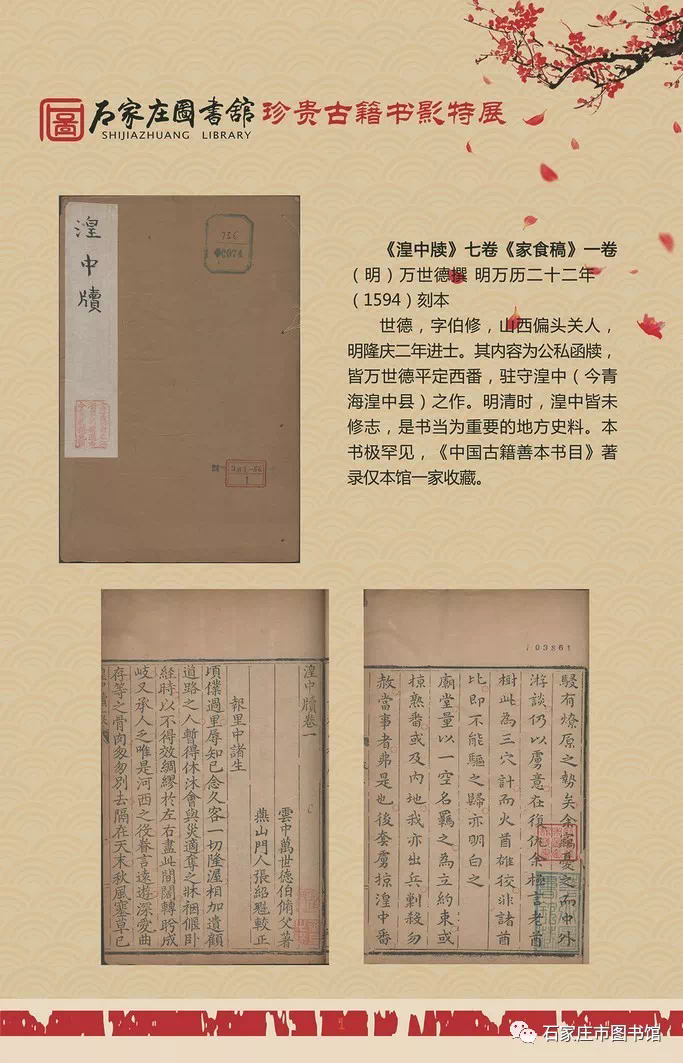 石家庄圖書館 珍贵古籍书影特展
SHIJIAZHUANG LIBRARY
湟中牘
《湟中牍》七卷《家食稿》一卷
（明）万世德撰 明万历二十二年
（1594）刻本
世德，字伯修，山西偏头关人，
明隆庆二年进士。其内容为公私函牍，
皆万世德平定西番，驻守湟中（今青
海湟中县）之作。明清时，湟中皆未
修志，是书当为重要的地方史料。本
书极罕见，《中国古籍善本书目》著
录仅本馆一家收藏。
湟中牘卷一
雲中萬世德伯脩父著
燕山門人張紹魁較正
報里中諸生
頃僕過里辱知己念久客一切隆渥相加遺顧
道路之人暫得休沐會與災適奪之牀稇偃卧
経時以不得效綢繆於左右盡此間闊轉盻成
岐又承人之唯是河西之役眷言遠遊深愛曲
存等之骨肉匆匆別去隔在天末秋風塞草已
103861
駸有燎原之勢矣余竊憂之而中外
游談仍以虜意在復仇余極言老酋
樹此為三穴計而火酋雄狡非諸酋
比即不能驅之歸亦明白之
廟堂量以一空名羈之為立約束或
掠熟番或及内地我亦出兵剿殺勿
赦當事者弗是也後套虜掠湟中番
1
石家庄市图书馆